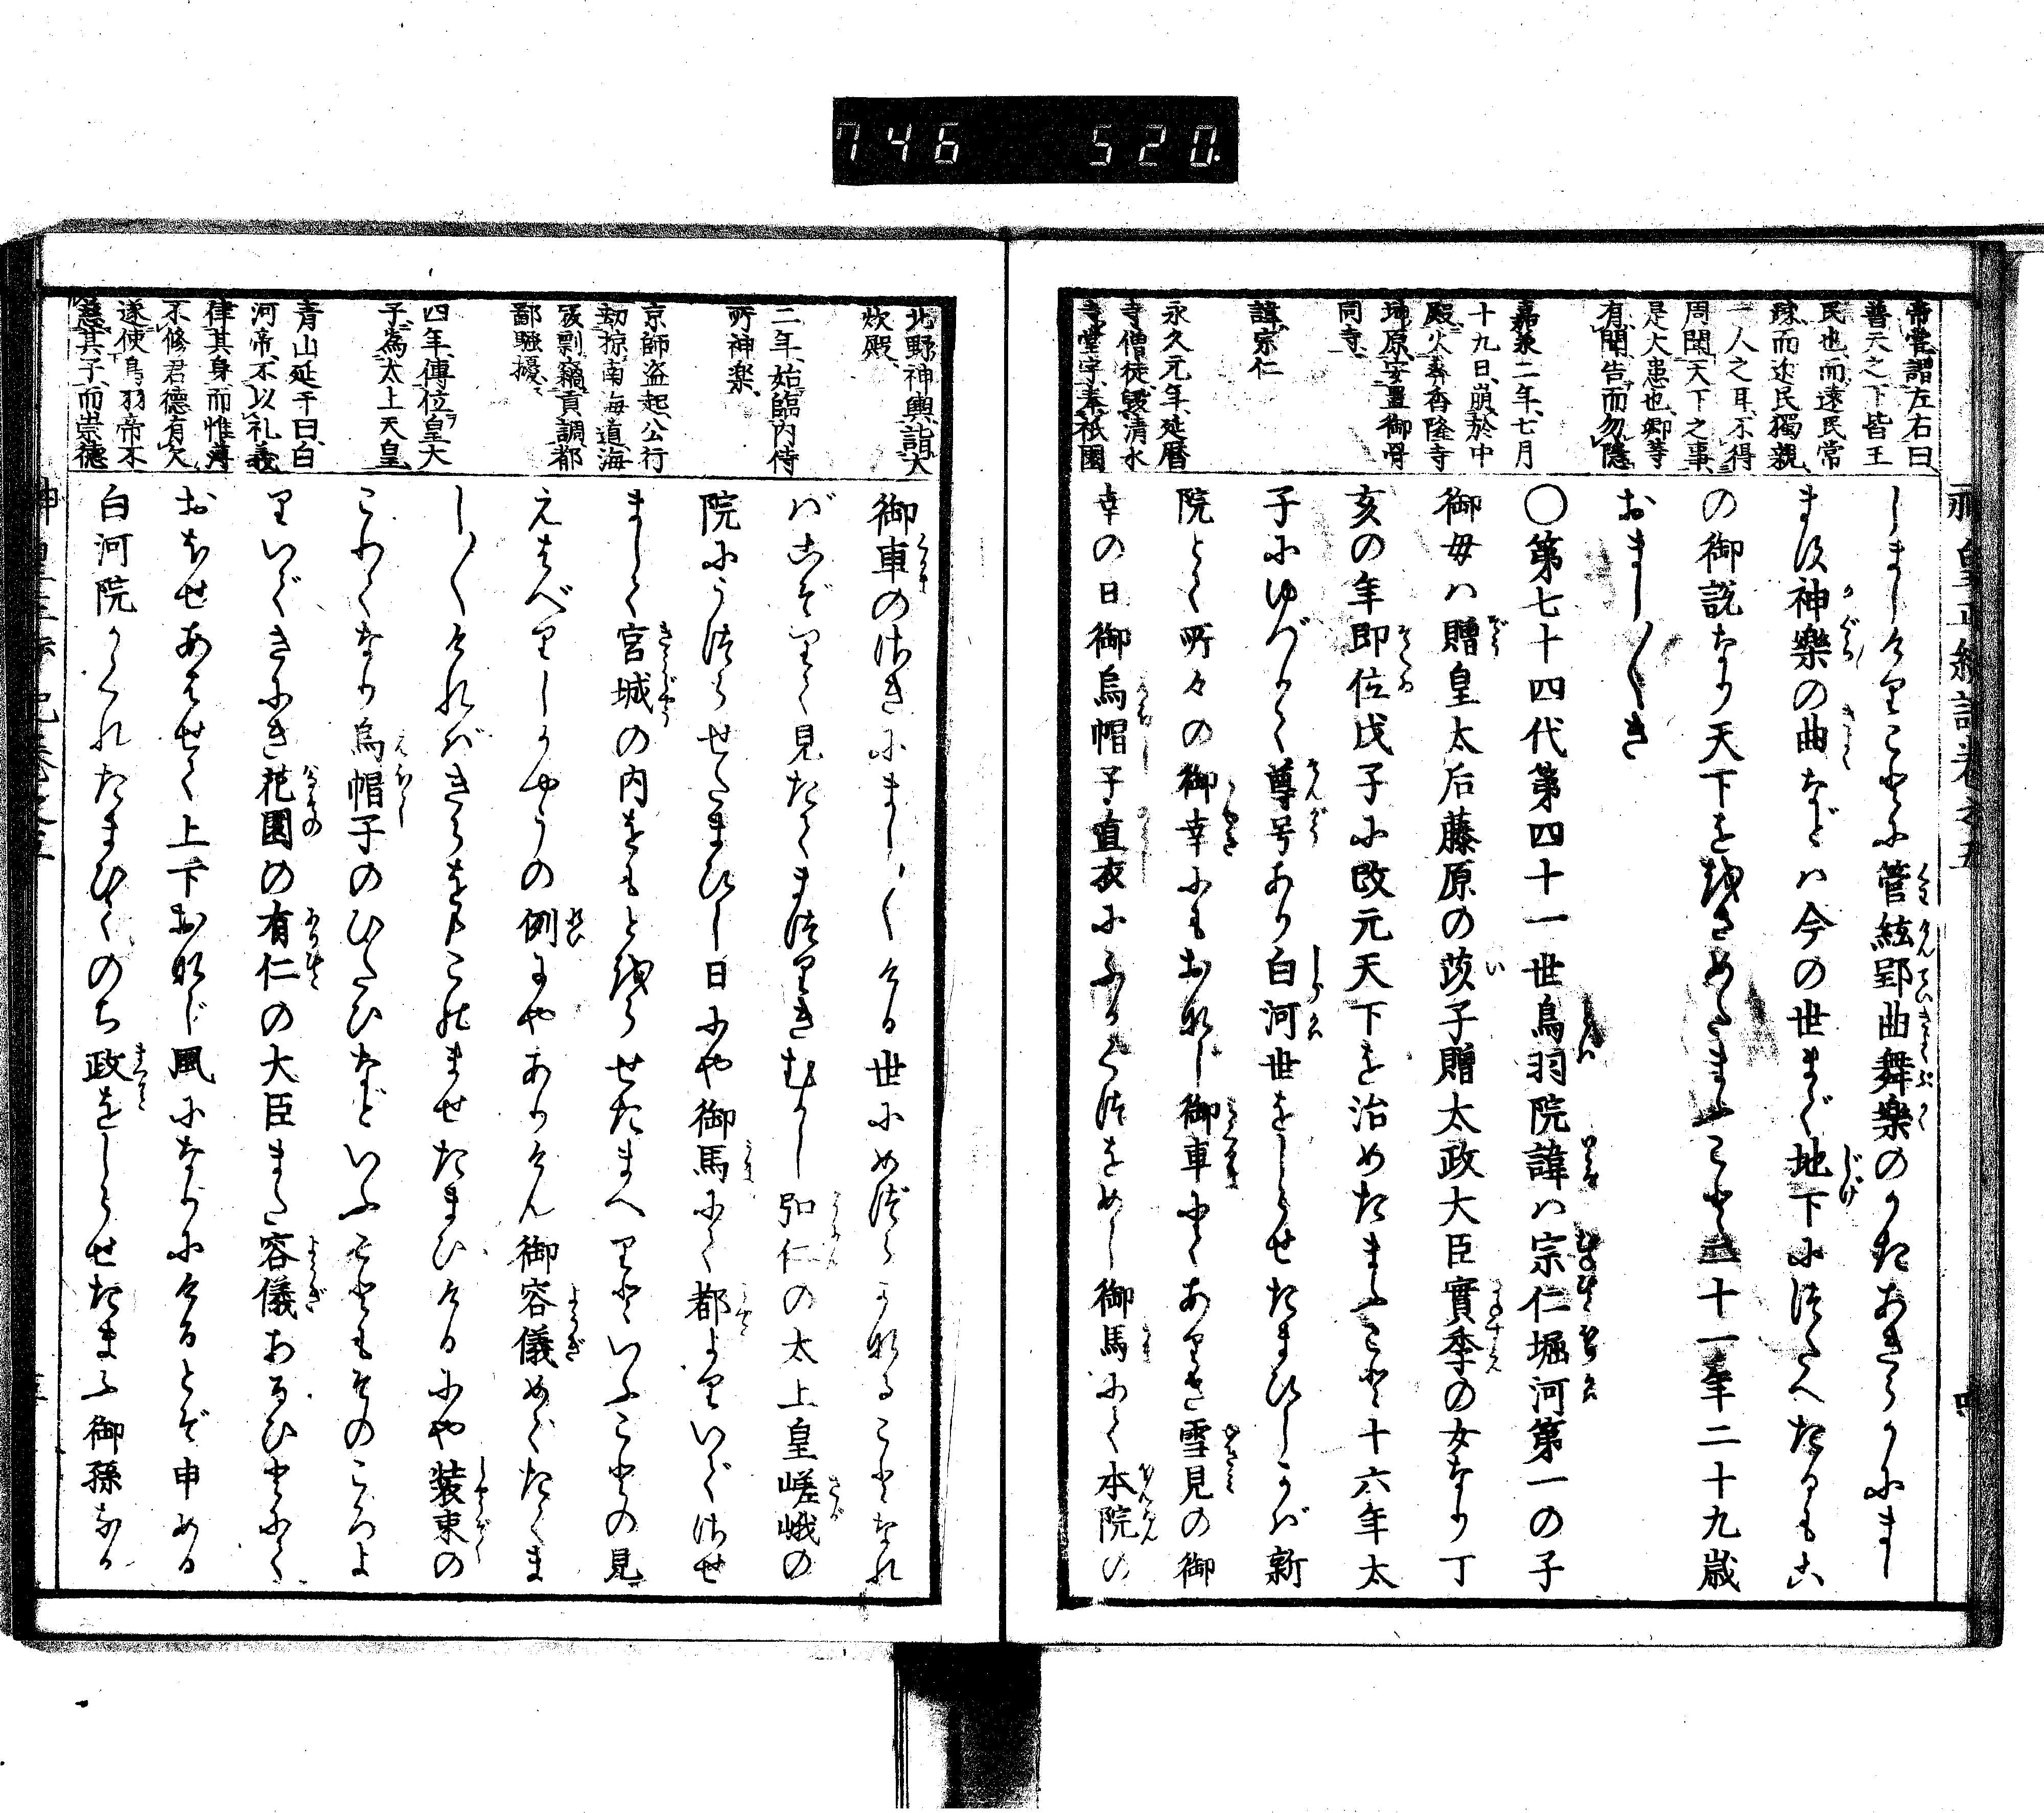 746 520
帝常謂左右曰
普天之下皆王
民也而遠民常
疎而近民獨親
一人之耳不得
周聞天下之事
是大患也卿等
有聞告而勿隠
嘉承二年七月
十九日崩於中
殿火葬香隆寺
坤原安置御骨
同寺
諱宗仁
永久元年延暦
寺僧徒毀清水
寺堂宇奉祇園
しましけりことに管絃郢曲舞樂のかたあきらかにまし
ます神樂の曲などは今の世まで地下につたへたるもこ
の御説なり天下を治めたまふこと二十一年二十九歳
おまし〱き
〇第七十四代第四十一世鳥羽院諱ハ宗仁堀河第一の子
御母ハ贈皇太后藤原の苡子贈太政大臣實季の女なり丁
亥の年即位戊子に改元天下を治めたまふこと十六年太
子にゆづりて尊号あり白河世をしらせたまひしかば新
院とて所々の御幸にもおなじ御車にてありき雪見の御
幸の日御烏帽子直衣にふかぐつをめし御馬にて本院の
北野神輿詣大
炊殿
二年始臨内侍
所神楽
京師盗起公行
劫掠南海道海
寇剽竊貢調都
鄙騒擾
四年傳位皇太
子為太上天皇
青山延于曰白
河帝不以礼義
律其身而惟薄
不修君德有欠
遂使鳥羽帝不
慈其子而崇德
御車のさきにまし〱ける世にめづらかなることなれ
ばこぞりて見たてまつりきむかし弘仁の太上皇嵯峨の
院にうつらせたまひし日にや御馬にて都よりいでさせ
まして宮城の内をもとほらせたまへりといふことの見
えはべりしかやうの例にやありけん御容儀めでたくま
し〱ければきらをもこのませたまひけるにや装束の
こわくなり烏帽子のひたひなどいふこともそのころよ
りいできにき花園の有仁の大臣また容儀あるひとにて
おほせあはせて上下おなじ風になりにけるとぞ申める
白河院かくれたまひてのち政をしらせたまふ御孫ながら